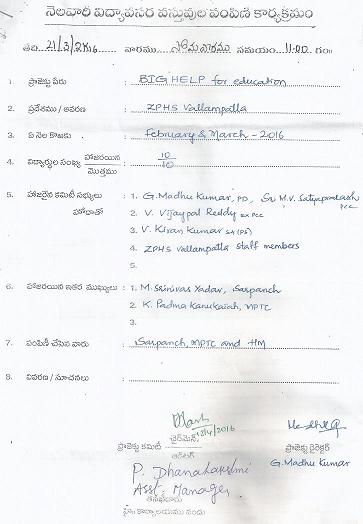 నెలవారీ విద్యావసర వస్తువుల పంపిణీ కార్యక్రమం
తేది 21/3/2016 వారము సోమవారము సమయం 11.00 గం॥
1. ప్రాజెక్టు పేరు : BIG HELP for education
2. ప్రదేశము / ఆవరణ : ZPHS Vallampatla
3. ఏ నెల కొఱకు : February & March - 2016
4. విద్యార్థుల సంఖ్య హాజరయిన 10
మొత్తము 10
5. హాజరైన కమిటీ సభ్యులు : 1. G. Madhu Kumar, PD, Sri M.V. Satyaprakash
PCC
హోదాతో 2. V. Vijaypal Reddy Ex PCC
3. V. Kiran Kumar SA (PS)
4. ZPHS Vallampatla staff members
5.
6. హాజరయిన ఇతర ముఖ్యులు : 1. M. Srinivas Yadav, Sarpanch
2. K. Padma Kanukaiah, MPTC
3.
7. పంపిణీ చేసిన వారు : Sarpanch, MPTC and HM
8. వివరణ / సూచనలు :
12/4/2016
ప్రాజెక్టు కమిటీ చైర్మెన్, ప్రాజెక్టు డైరెక్టర్
ఆడిటర్ G. Madhu Kumar
P. Dhanalakshmi
Asst. Manager
తనిఖీదారు
హైద్ కార్యాలయము నందు